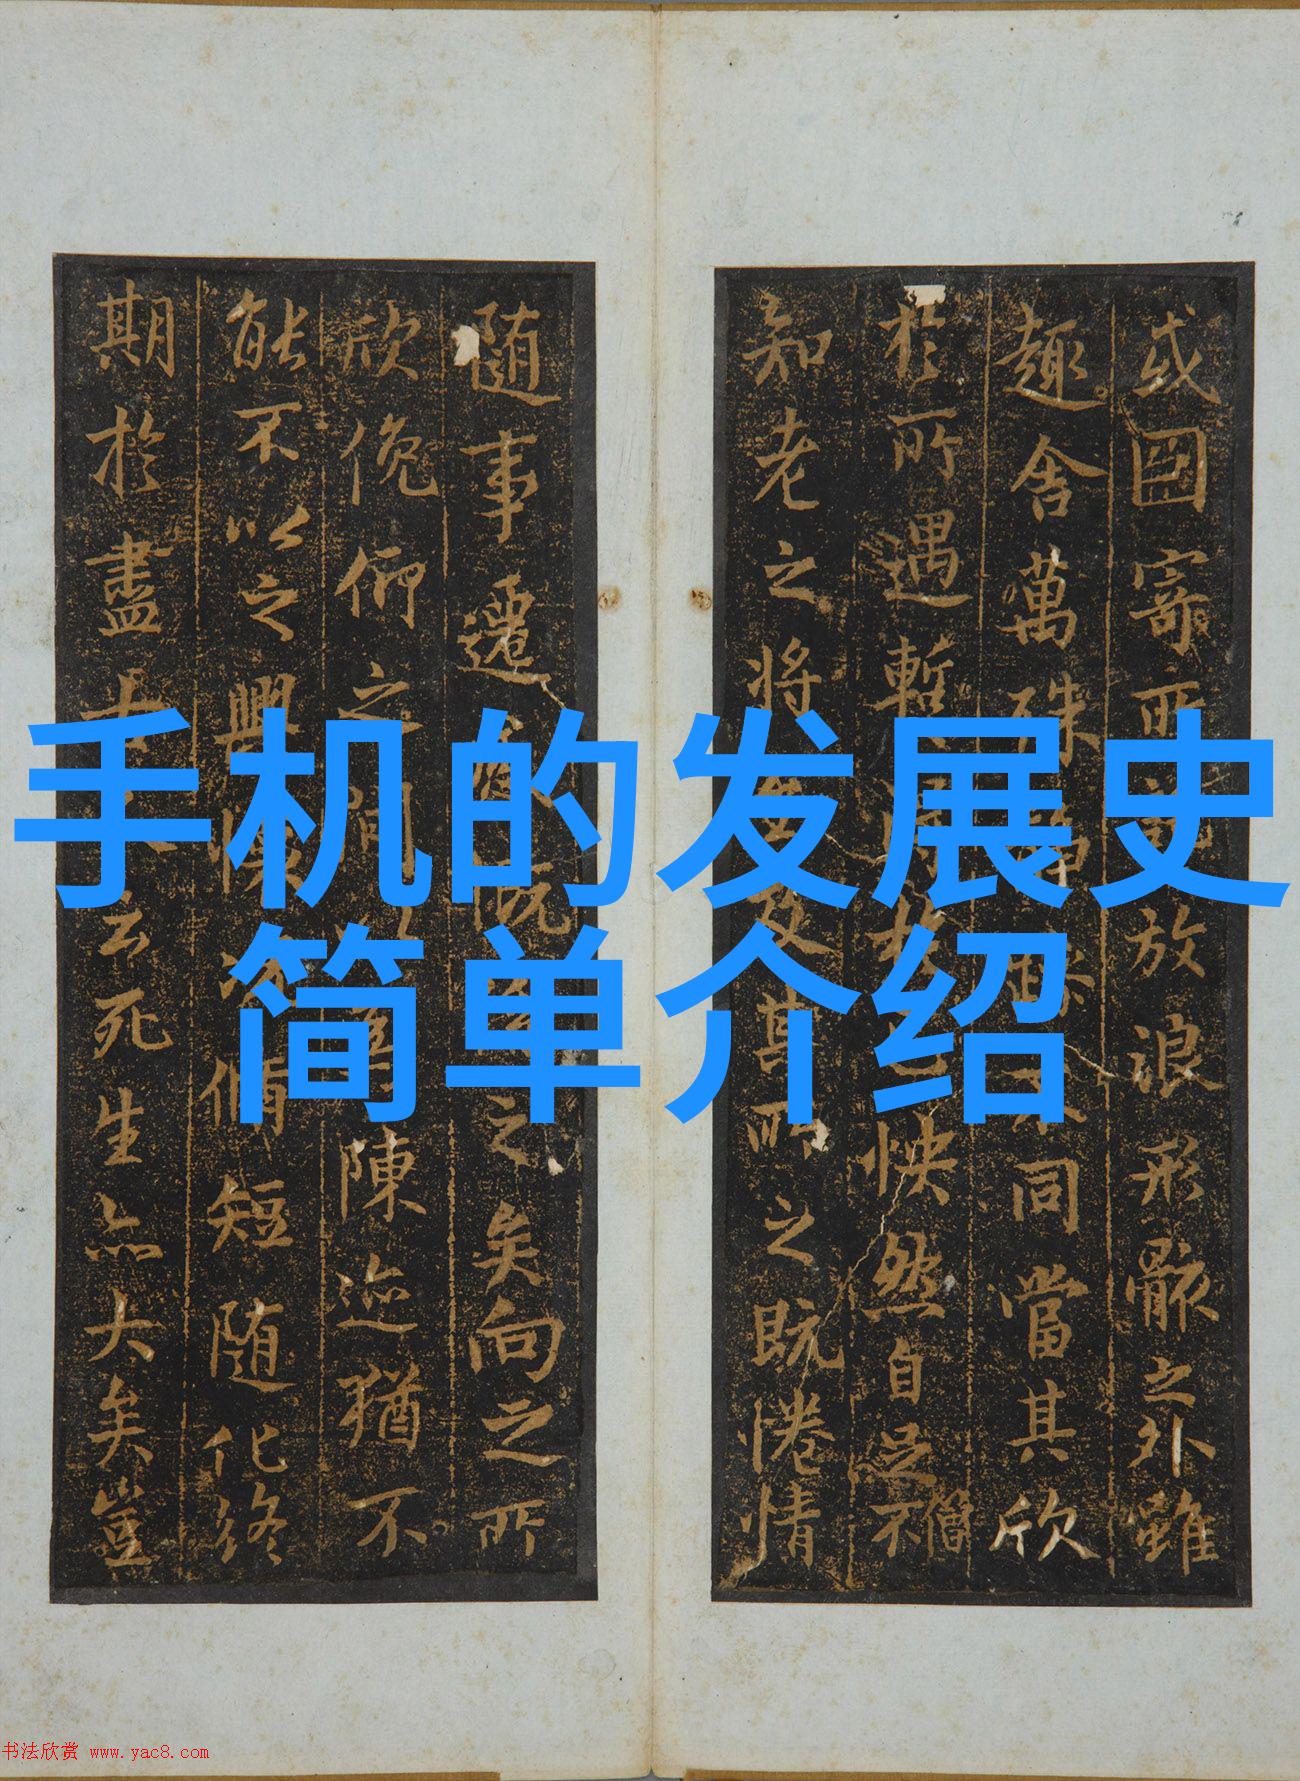 手机的发展史
简单介绍
或囙寄所放浪形骸之外雖
趣舍萬殊不同當其欣
於所遇暫快然自足不僧
知老之將及其所之既惓情
隨事遷之矣向之所
欣俛仰之間陳迹猶不
能不以之興懷脩短隨化終
期於盡云死生亦大矣豈
书法欣赏 www.yac8.com